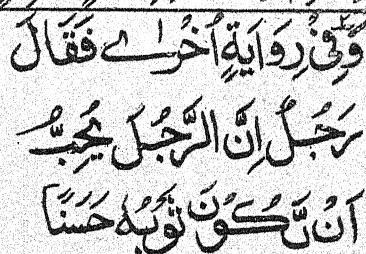 وَفِیْ رِوَایَةٍ اُخْرٰے فَقَالَ
رَجُلٌ اِنَّ الرَّجُلَ یُحِبُّ
اَنْ یَّکُوْنَ ثَوْبُهٗ حَسَنًا